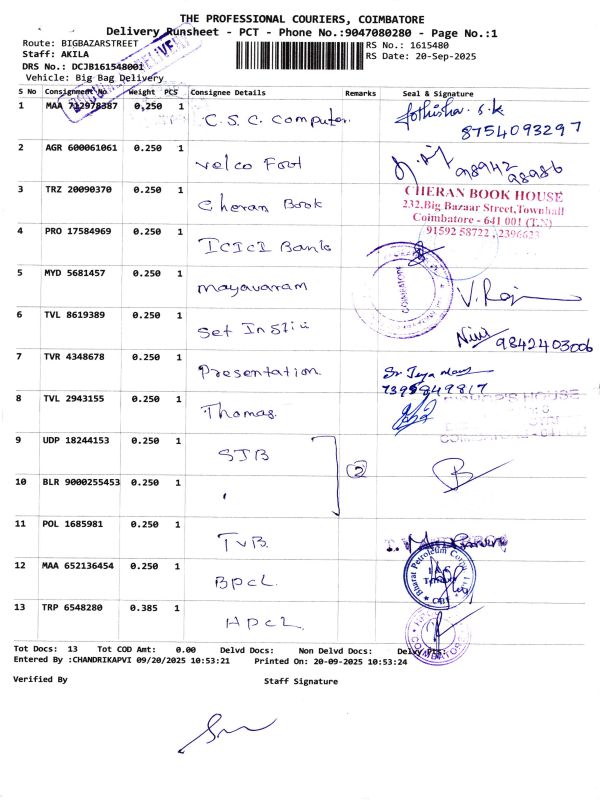 THE PROFESSIONAL COURIERS, COIMBATORE
Delivery Runsheet - PCT - Phone No.:9047080280 - Page No.:1
Route: BIGBAZARSTREET
RS No.: 1615480
Staff: AKILA
RS Date: 20-Sep-2025
DRS No.: DCJB161548001
Vehicle: Big Bag Delivery
S No Consignment No Weight PCS Consignee Details Remarks Seal & Signature
1 MAA 712978387 0.250 1 C.S.C. Computer. Jothisha. S.K
8754093297
2 AGR 600061061 0.250 1 Velco Foot 98942
98986
3 TRZ 20090370 0.250 1 Cheran Book CHERAN BOOK HOUSE
232,Big Bazaar Street,Townhall
Coimbatore - 641 001 (T.N)
91592 58722 , 2396623
4 PRO 17584969 0.250 1 ICICI Bank
5 MYD 5681457 0.250 1 Mayavaram COIMBATORE V. Raj
6 TVL 8619389 0.250 1 Set Instiu Nivi 9842403006
7 TVR 4348678 0.250 1 Presentation.
7395949817
8 TVL 2943155 0.250 1 Thomas. BISHOP'S HOUSE
9 UDP 18244153 0.250 1 STB 2
10 BLR 9000255453 0.250 1 "
11 POL 1685981 0.250 1 TVB.
12 MAA 652136454 0.250 1 BPCL. Bharat Petroleum Corp
13 TRP 6548280 0.385 1 HPCL COIMBATORE
Tot Docs: 13 Tot COD Amt: 0.00 Delvd Docs: Non Delvd Docs: Delvy Pts:
Entered By :CHANDRIKAPVI 09/20/2025 10:53:21 Printed On: 20-09-2025 10:53:24
Verified By Staff Signature